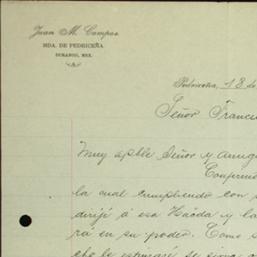 Juan M. Campos
HDA. DE PEDRICEÑA
DURANGO, MEX.
Pedriceña, 18 de
Señor Francis
Muy apble Señor y amigo
Confirmo
la cual cumpliendo con
dirijí á esa Hacda y la
rá en su poder. Como